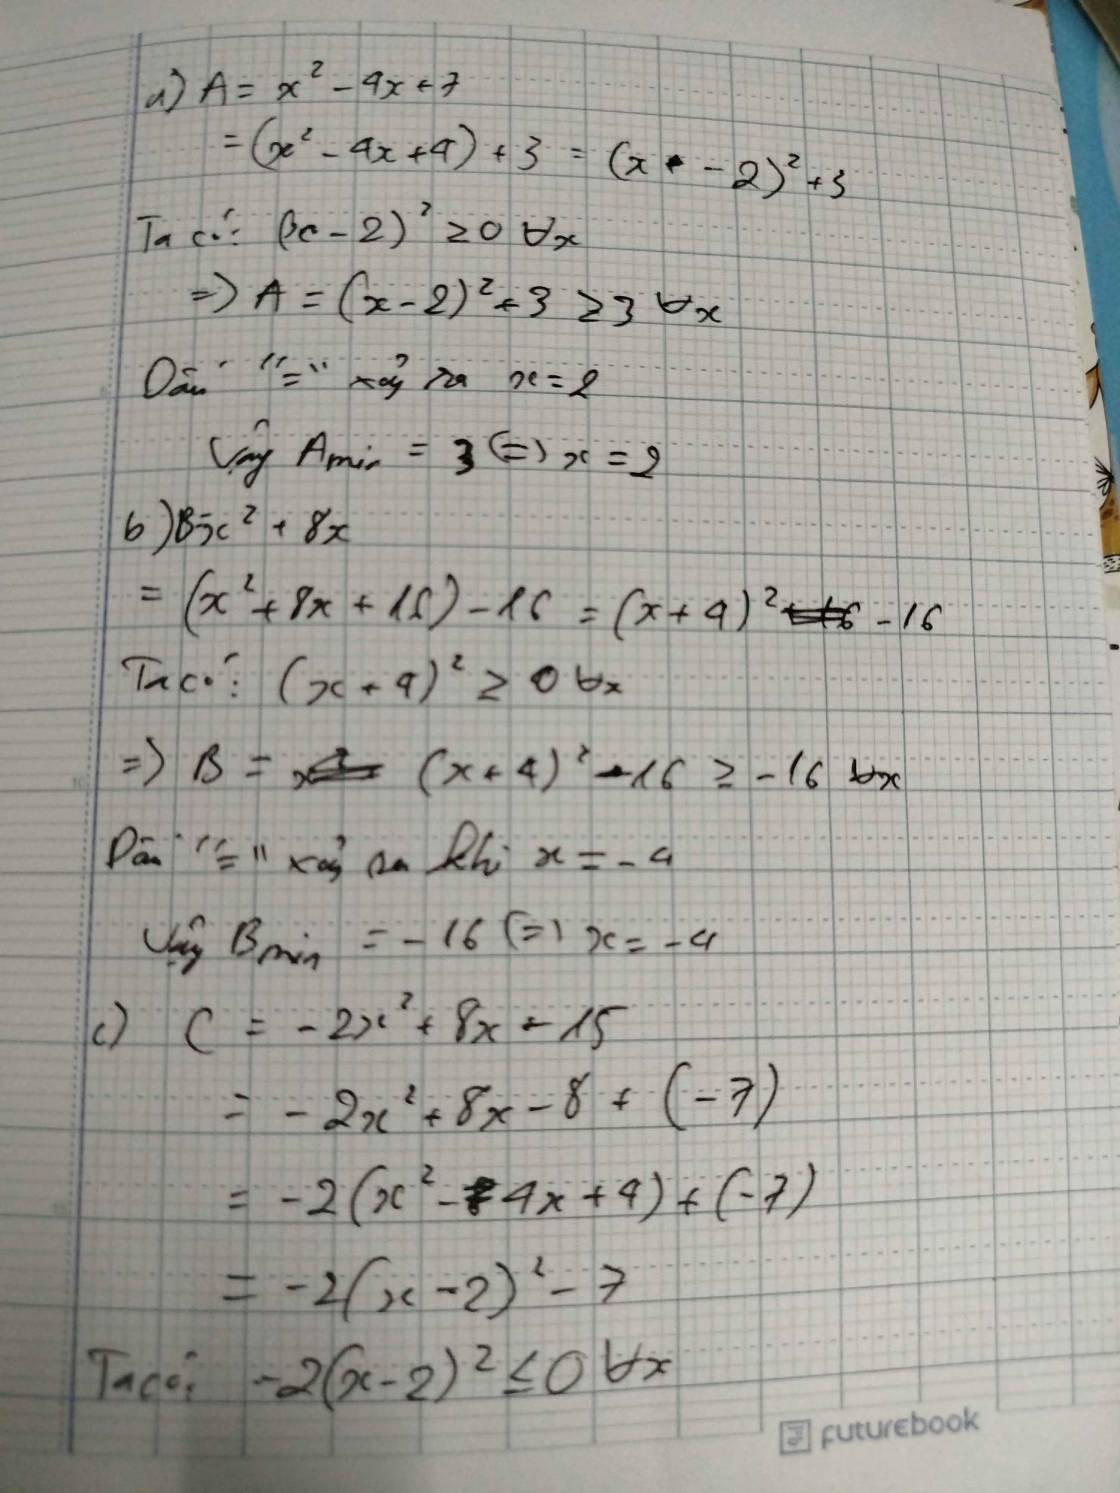 a) A = x² - 4x + 7
= (x² - 4x + 4) + 3 = (x - 2)² + 3
Ta có: (x - 2)² ≥ 0 ∀x
=> A = (x - 2)² + 3 ≥ 3 ∀x
Dấu "=" xảy ra x = 2
Vậy Amin = 3 (=) x = 2
b) B = x² + 8x
= (x² + 8x + 16) - 16 = (x + 4)² - 16
Ta có: (x + 4)² ≥ 0 ∀x
=> B = (x + 4)² - 16 ≥ -16 ∀x
Dấu "=" xảy ra khi x = -4
Vậy Bmin = -16 (=) x = -4
c) C = -2x² + 8x - 15
= -2x² + 8x - 8 + (-7)
= -2(x² - 4x + 4) + (-7)
= -2(x - 2)² - 7
Ta có: -2(x - 2)² ≤ 0 ∀x
futurebook